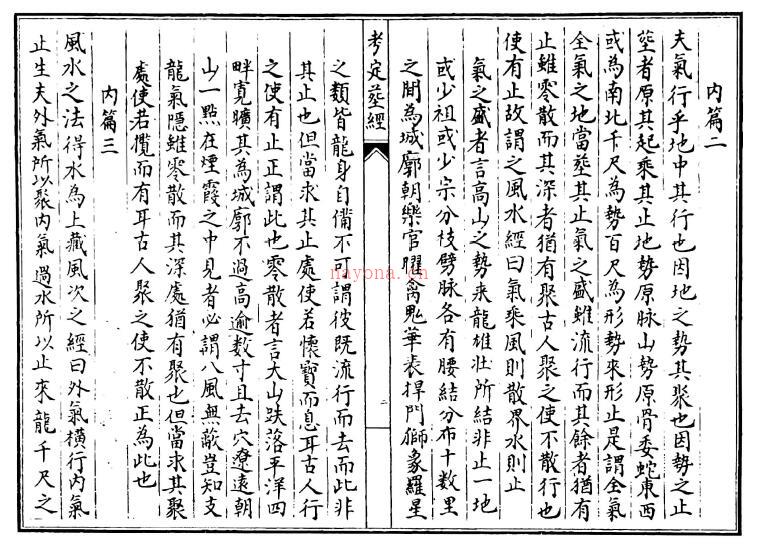 內篇二
夫氣行乎地中其行也因地之勢其聚也因勢之止
塟者原其起乘其止地勢原脉山勢原骨委蛇東西
或為南北千尺為勢百尺為形勢來形止是謂全氣
全氣之地當塟其止氣之盛雖流行而其餘者猶有
止雖零散而其深者猶有聚古人聚之使不散行也
使有止故謂之風水經曰氣乘風則散界水則止
氣之盛者言高山之勢来龍雄壮所結非止一地
或少祖或少宗分枝劈脉各有腰結分布十数里
之間為城廓朝樂官曜禽鬼華表捍門獅象羅星
考定塟經
二
之類皆龍身自備不可謂彼既流行而去而此非
其止也但當求其止處使若懷寶而息耳古人行
之使有止正謂此也零散者言大山跌落平洋四
畔寛曠其為城廓不過高逾数寸且去穴遼遠朝
山一點在煙霞之中見者必謂八風無蔽豈知支
龍氣隱雖零散而其深處猶有聚也但當求其聚
處使若攬而有耳古人聚之使不散正為此也
內篇三
風水之法得水為上藏風次之經曰外氣橫行內氣
止生夫外氣所以聚內氣過水所以止來龍千尺之
nayona.cn